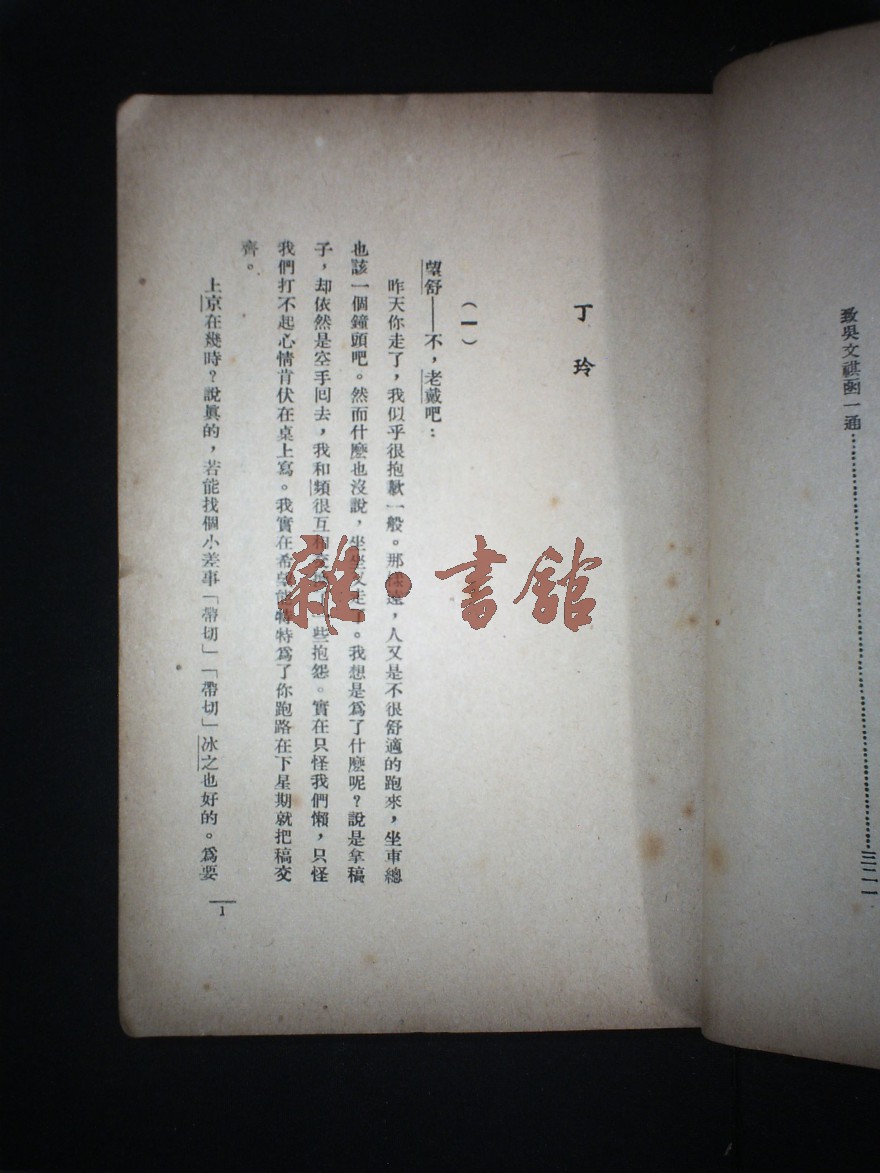 致吳文祺函一通……三二一
丁玲
（一）
望舒——不，老戴吧：
昨天你走了，我似乎很抱歉一般。那樣遠，人又是不很舒適的跑來，坐車總
也該一個鐘頭吧。然而什麼也沒說，坐坐又走了。我想是爲了什麼呢？說是拿稿
子，却依然是空手囘去，我和頻很互相 一些抱怨。實在只怪我們懶，只怪
我們打不起心情肯伏在桌上寫。我實在希望能特特爲了你跑路在下星期就把稿交
齊。
上京在幾時？說眞的，若能找個小差事「帶切」「帶切」冰之也好的。爲要
1
雜·書館